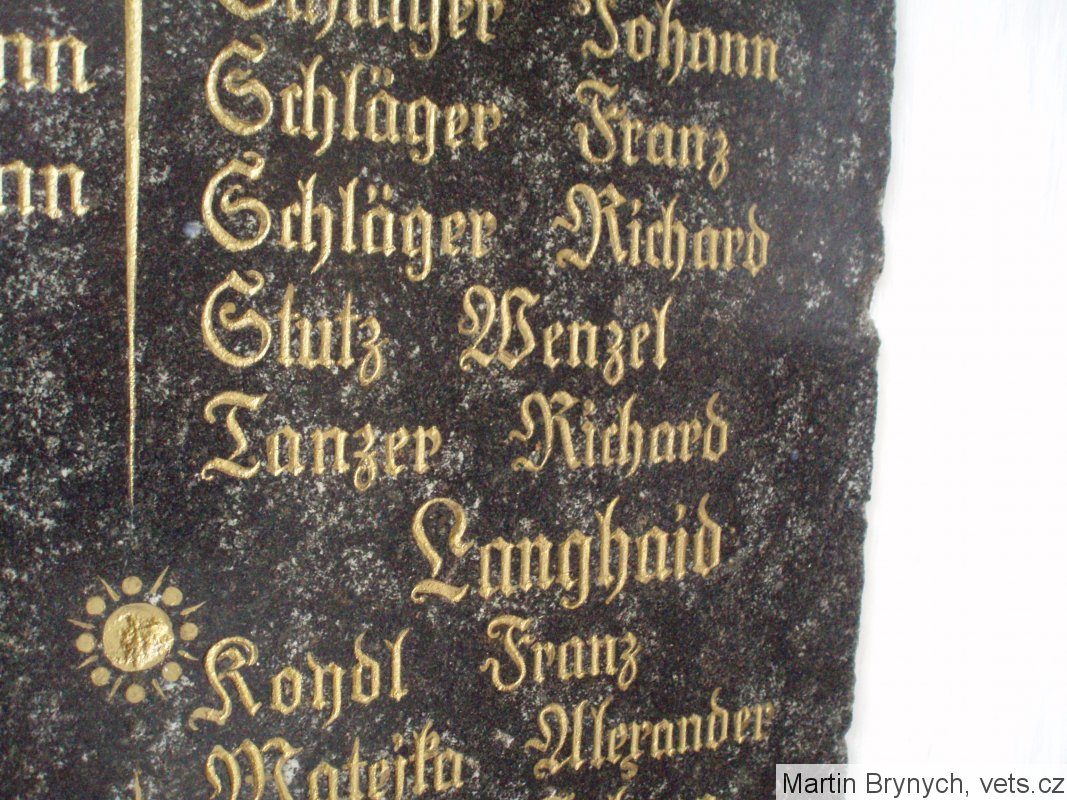 nn
nn
Schläger Johann
Schläger Franz
Schläger Richard
Stutz Wenzel
Tanzer Richard
Langhaid
Koydl Franz
Matejka Alexander
Martin Brynych, vets.cz